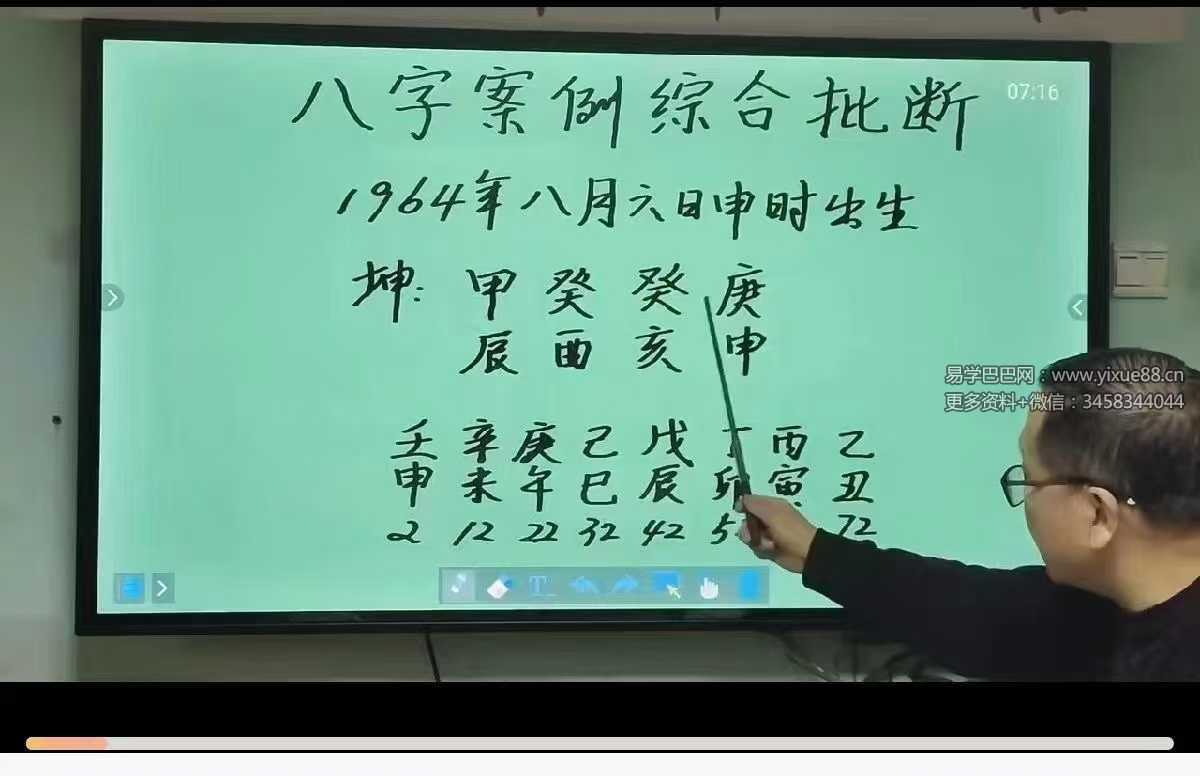 八字案例综合批断
07:16
1964年八月六日申时出生
坤: 甲 癸 癸 庚
辰 酉 亥 申
易学巴巴网:www.yixue88.cn
更多资料+微信:3458344044
壬 辛 庚 己 戊 丁 丙 乙
申 未 午 巳 辰 卯 寅 丑
2 12 22 32 42 5 72